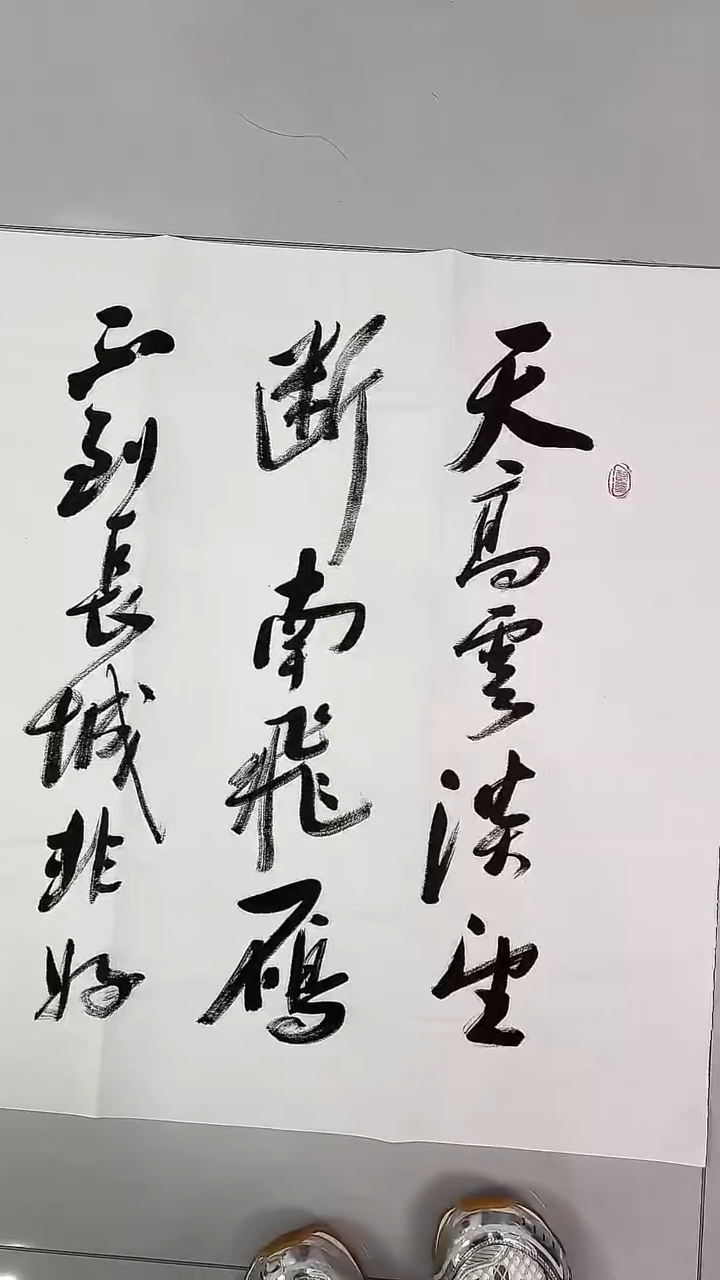 天高雲淡望
斷南飛雁
不到長城非好